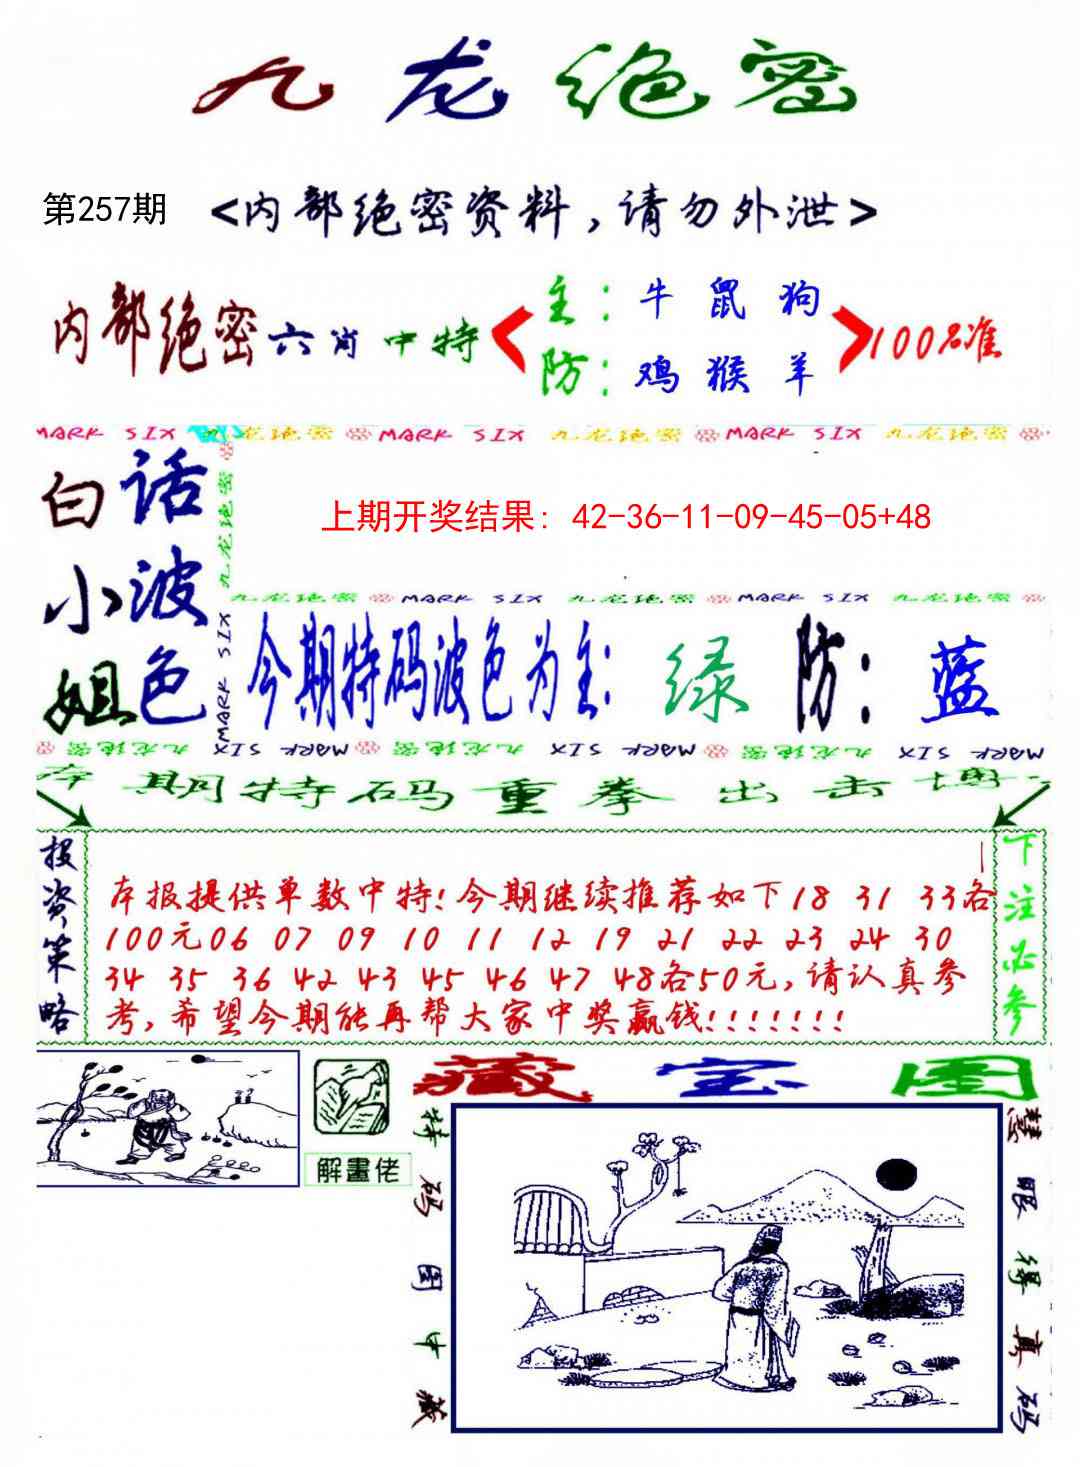 九龙绝密
第257期 <内部绝密资料,请勿外泄>
内部绝密六肖中特
主:牛 鼠 狗
防:鸡 猴 羊
100%准
MARK SIX 九龙绝密 MARK SIX 九龙绝密 MARK SIX 九龙绝密
白小姐
话波色
九龙绝密
MARK SIX
MARK SIX
上期开奖结果: 42-36-11-09-45-05+48
九龙绝密 MARK SIX 九龙绝密 MARK SIX 九龙绝密
今期特码波色为主: 绿 防: 蓝
九龙绝密 MARK SIX 九龙绝密 MARK SIX 九龙绝密 MARK SIX
本期特码重拳出击博
投资策略
本报提供单数中特!今期继续推荐如下18 31 33各
100元06 07 09 10 11 12 19 21 22 23 24 30
34 35 36 42 43 45 46 47 48各50元,请认真参
考,希望今期能再帮大家中奖赢钱!!!!!!!
下注必参
解畫佬
藏宝图
特码图中藏
慧眼得真码